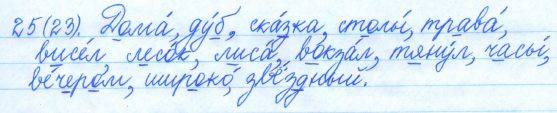 25(23). Дома́, ду́б, ска́зка, столы́, трава́,
висе́л, лесо́к, лиса́, вокза́л, тяну́л, часы́,
ве́чером, широко́, звёздный.